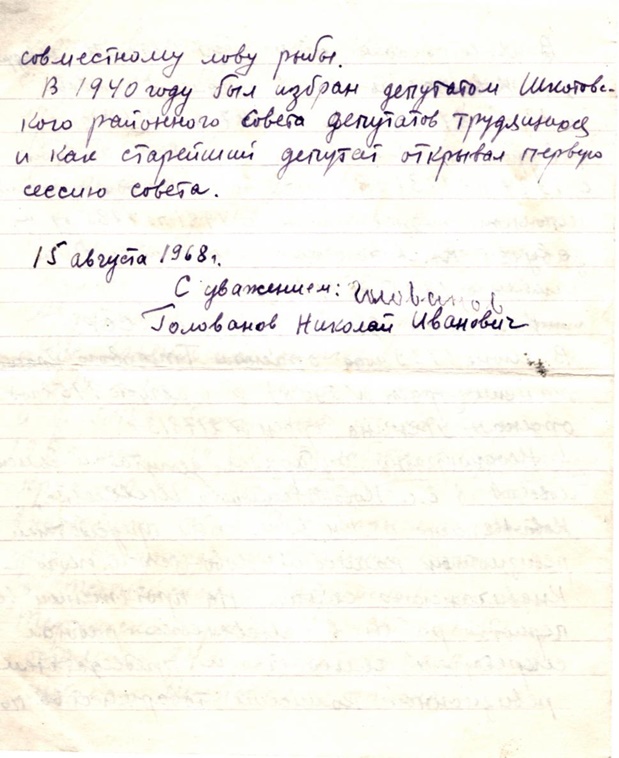 совместному лову рыбы.
В 1940 году был избран депутатом Шкотовс-
кого районного совета депутатов трудящихся
и как старейший депутат открывал первую
сессию совета.
15 августа 1968 г.
С уважением: Голованов
Голованов Николай Иванович